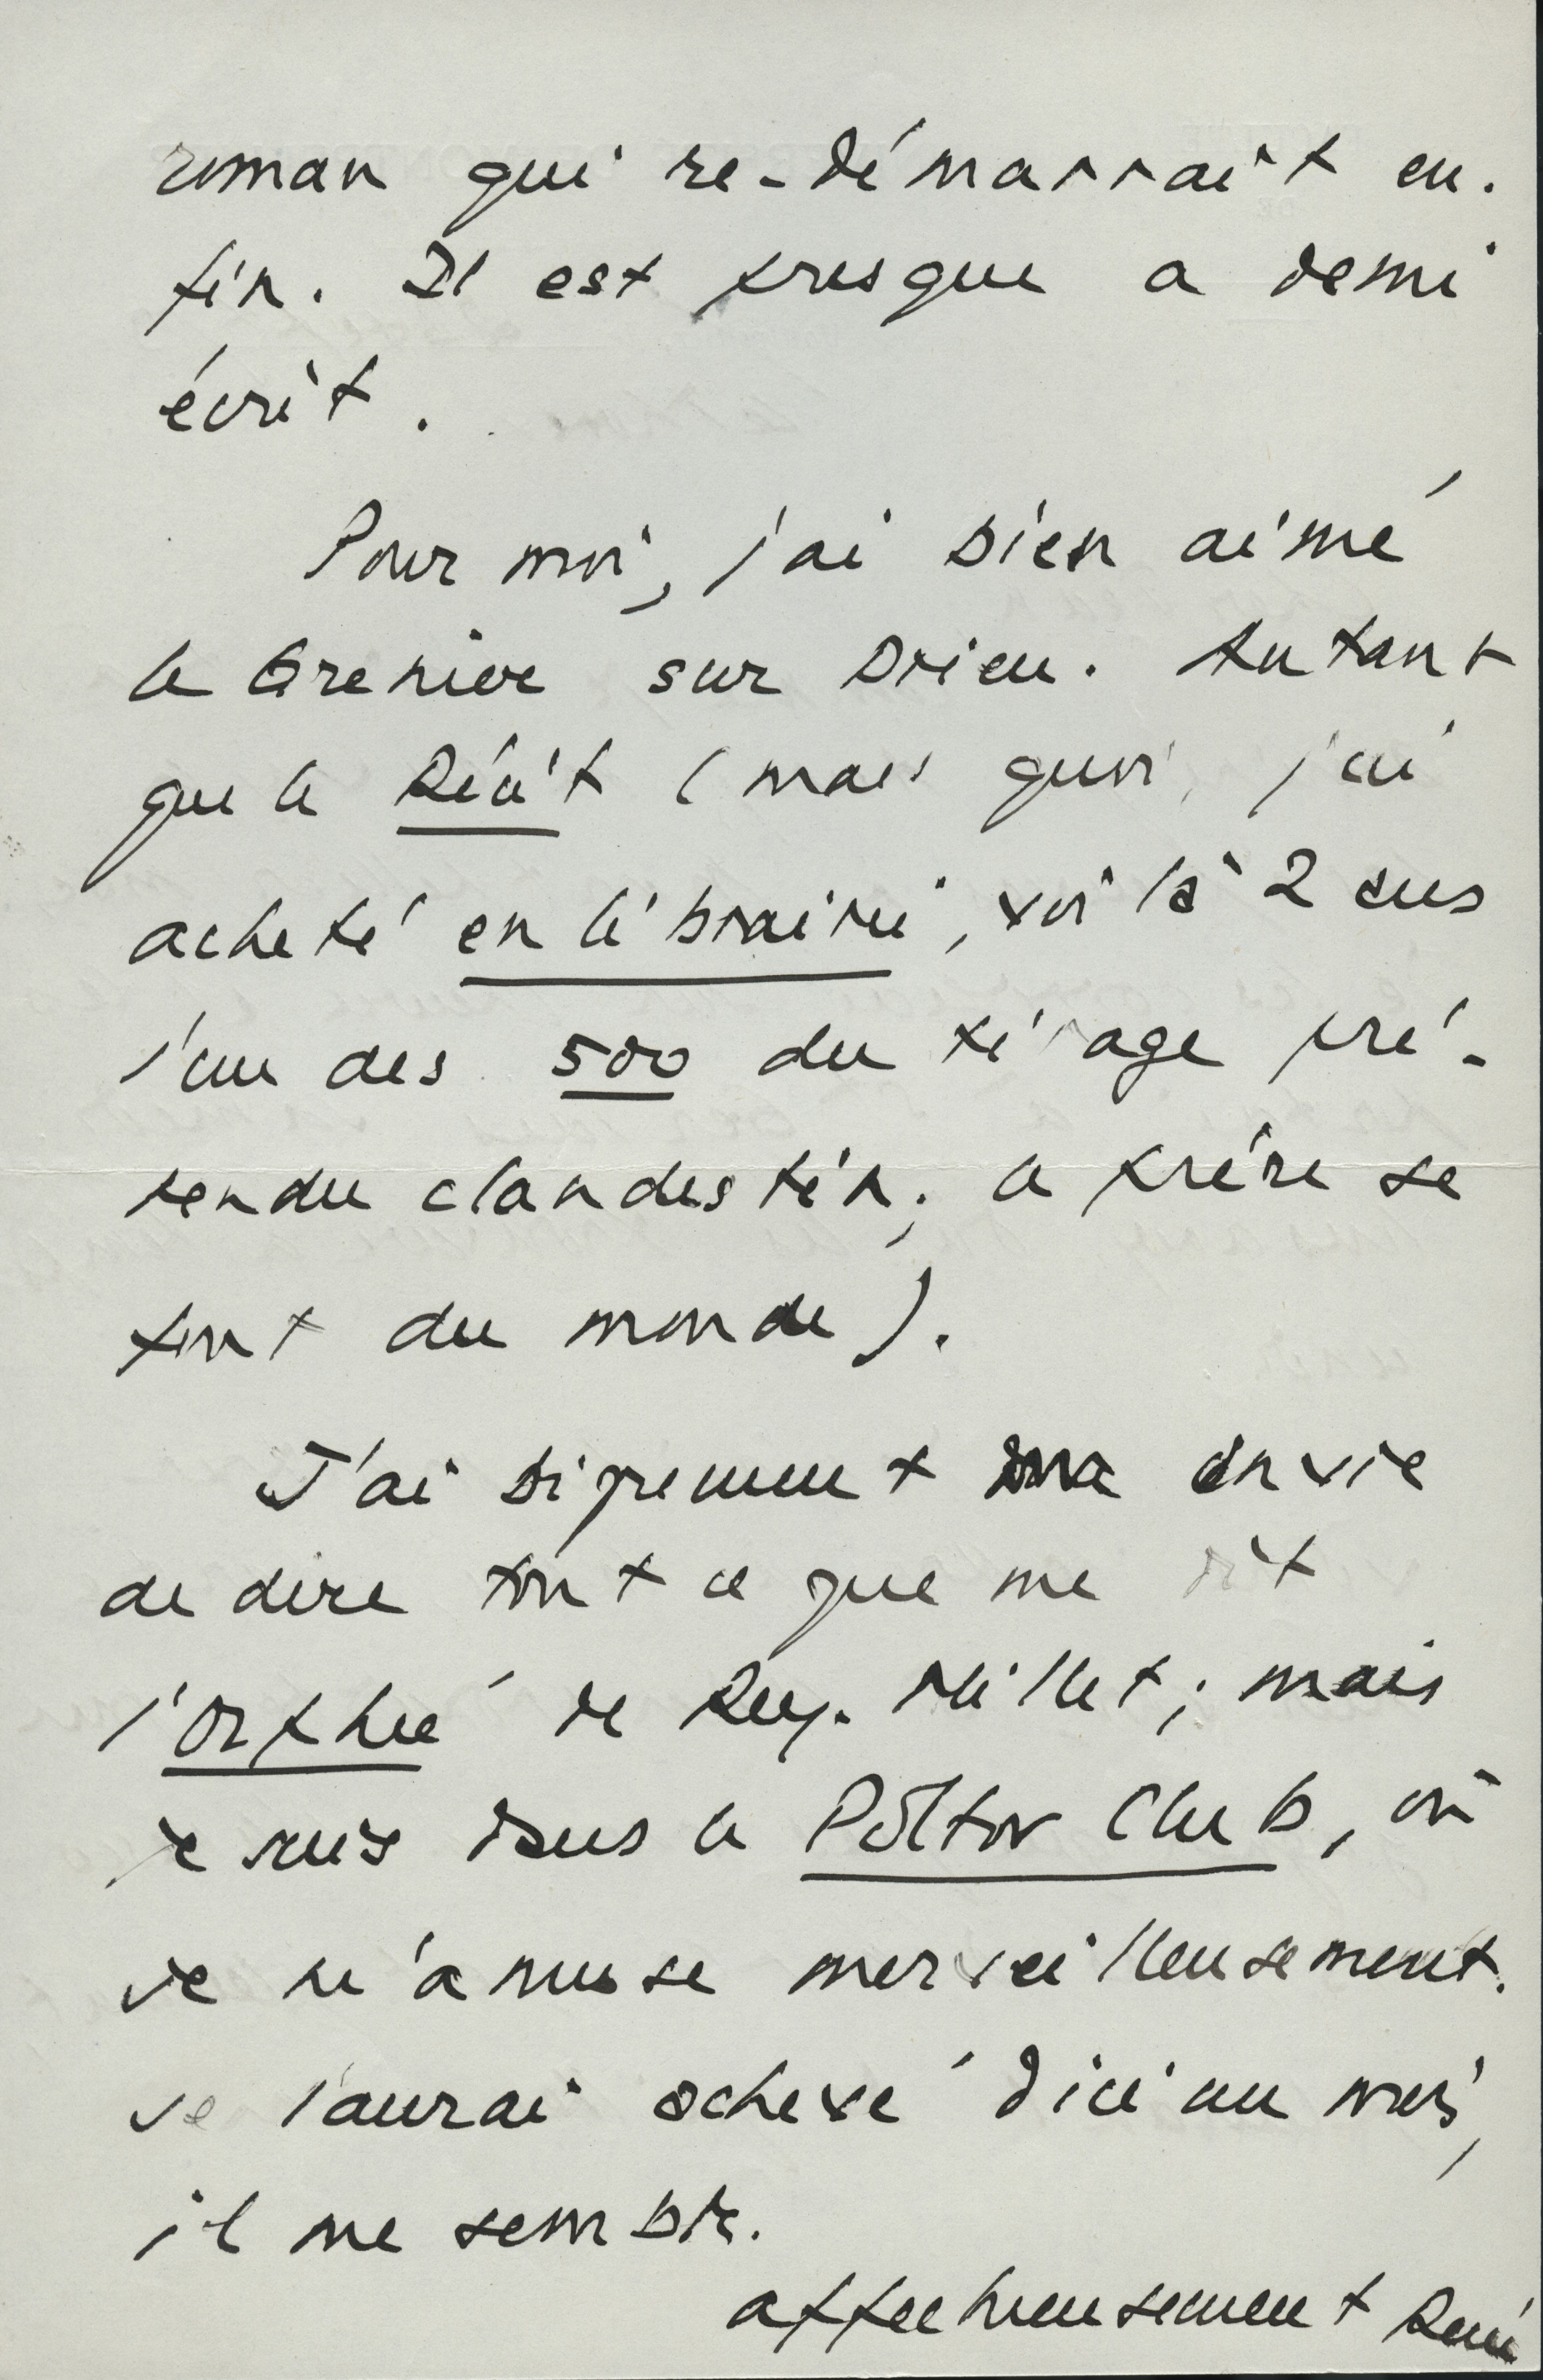 roman qui re-démarrait en-
fin. Il est presque a demi
écrit.
Pour moi, j'ai bien aimé
le Grenier sur Drieu. Autant
que le Récit (mais quoi, j'ai
acheté en librairie, voilà 2 ans
l'un des 500 du tirage pré-
tendu clandestin; le frère se
fout du monde).
J'ai bigrement envie
de dire tout ce que me dit
l'Orphée de Ray. Millet; mais
je suis dans le Poltor Club, où
je m'amuse merveilleusement.
Je l'aurai achevé d'ici un mois,
il me semble.
affectueusement René